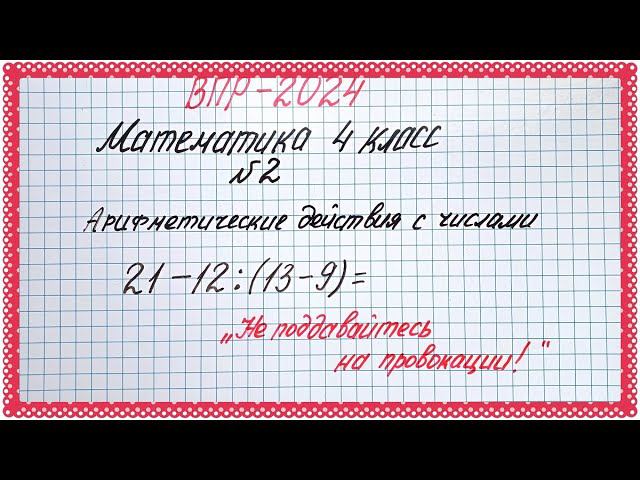 ВПР-2024
Математика 4 класс
№2
Арифметические действия с числами
21-12:(13-9)=
„Не поддавайтесь
на провокации!"